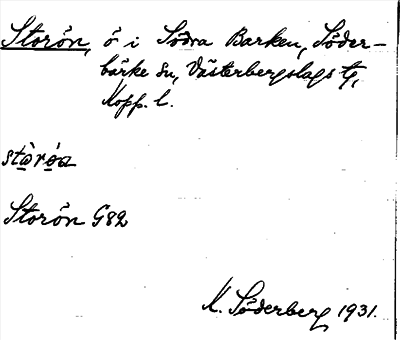 Storön, ö i Södra Barken, Söder-
bärke sn, Västerbergslags tg,
Kopp. l.
stòróa
Storön G82
K. Söderberg 1931.